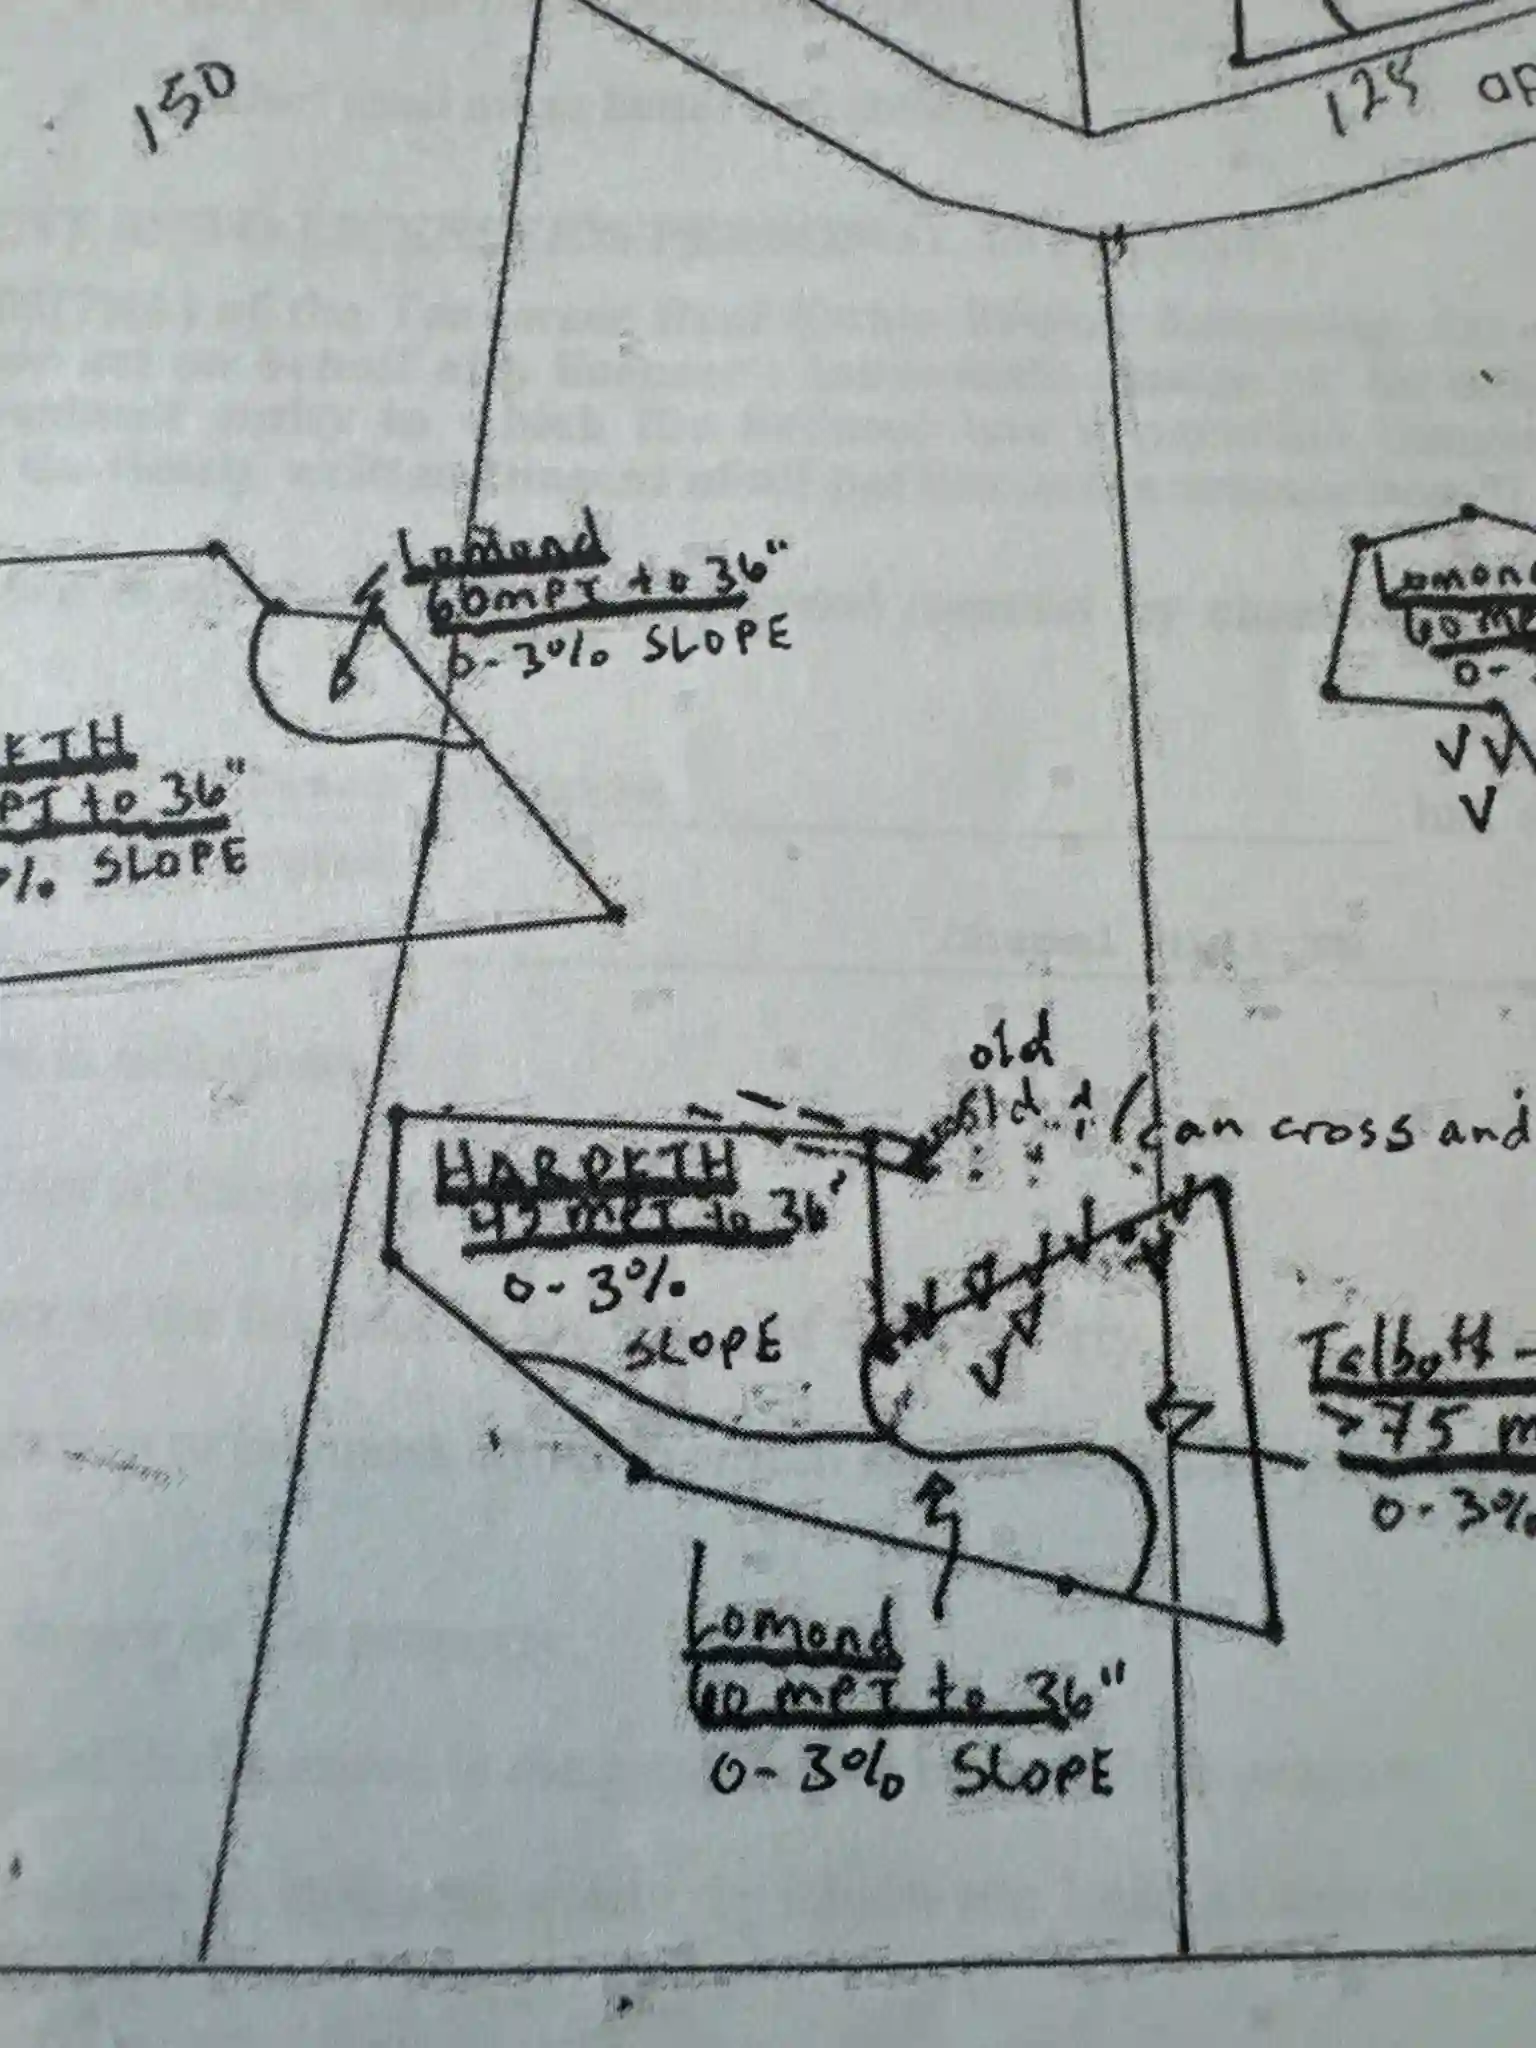 150
125 ap
Lomond
60 MPI to 36"
0-3% SLOPE
Lomon
60 MP
0-
KETH
PI to 36"
% SLOPE
V V
V
old
old
(can cross and
HARPETH
45 MPI to 36"
0-3%
SLOPE
Talbott -
>75 m
0-3%
Lomond
60 MPI to 36"
0-3% SLOPE